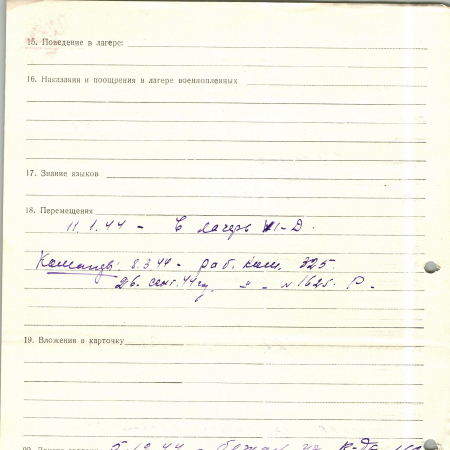 15. Поведение в лагере:
16. Наказания и поощрения в лагере военнопленных
17. Знание языков
18. Перемещения
11.1.44 – в лагерь VI-D.
Команды: 8.3.44 – раб. ком. 325.
26. сент. 44 г. " – " N 1625. Р.
19. Вложения в карточку
5.12.44 – бежал из к-ды